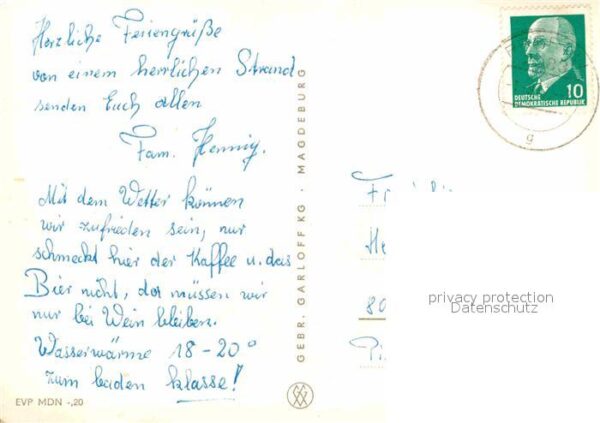 Herzliche Feriengrüße
von einem herrlichen Strand
senden Euch allen
Fam. Hennig.
Mit dem Wetter können
wir zufrieden sein, nur
schmeckt hier der Kaffee u. das
Bier nicht, da müssen wir
nur bei Wein bleiben.
Wasserwärme 18-20°
zum baden klasse!
EVP MDN -,20
GEBR. GARLOFF KG · MAGDEBURG
10
DEUTSCHE
DEMOKRATISCHE REPUBLIK
g
He
80
privacy protection
Datenschutz